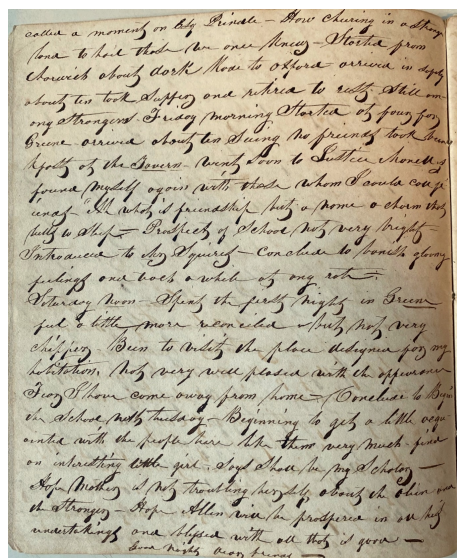 called a moment on Esq Prindle – How cheering in a strange
land to hail those we once knew – Started from
Norwich about dark Rode to Oxford arrived in safety
about ten took Supper and retired to rest. Still am-
ong Strangers. Friday morning Started at four for
Greene arrived about ten Seeing no friends took break
kfast at the Tavern – went Soon to Justice
found myself again with those whom I could call
friends – "Ah what is friendship but a name a charm that
lulls to Sleep – Prospect of School not very bright –
Introduced to Squires – Conclude to banish gloomy
feelings and teach a while at any rate –
Saturday noon – Spent the first Night in Greene
feel a little more reconciled – but not very
chipper. Been to visit the place designed for my
habitation, Not very well pleased with the appearance
Fear I have come away from home – Conclude to Begin
the School next tuesday – Beginning to get a little acqu-
ainted with the people here like them very much – find
an interesting little girl. Says Shall be my Scholar –
Hope Mother is not troubling herself about the
the Stranger – Hope Allen will be prospered in all his
undertakings and blessed with all that is good –
Good Night Dear friends –